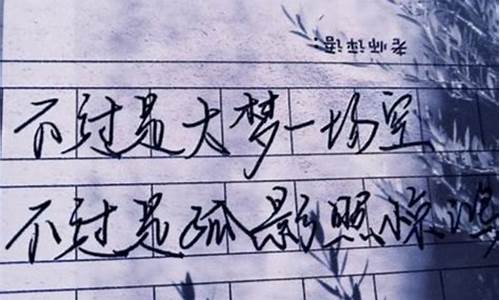 老师评语：
不过是大梦一场空
不过是孤影照惊鸿